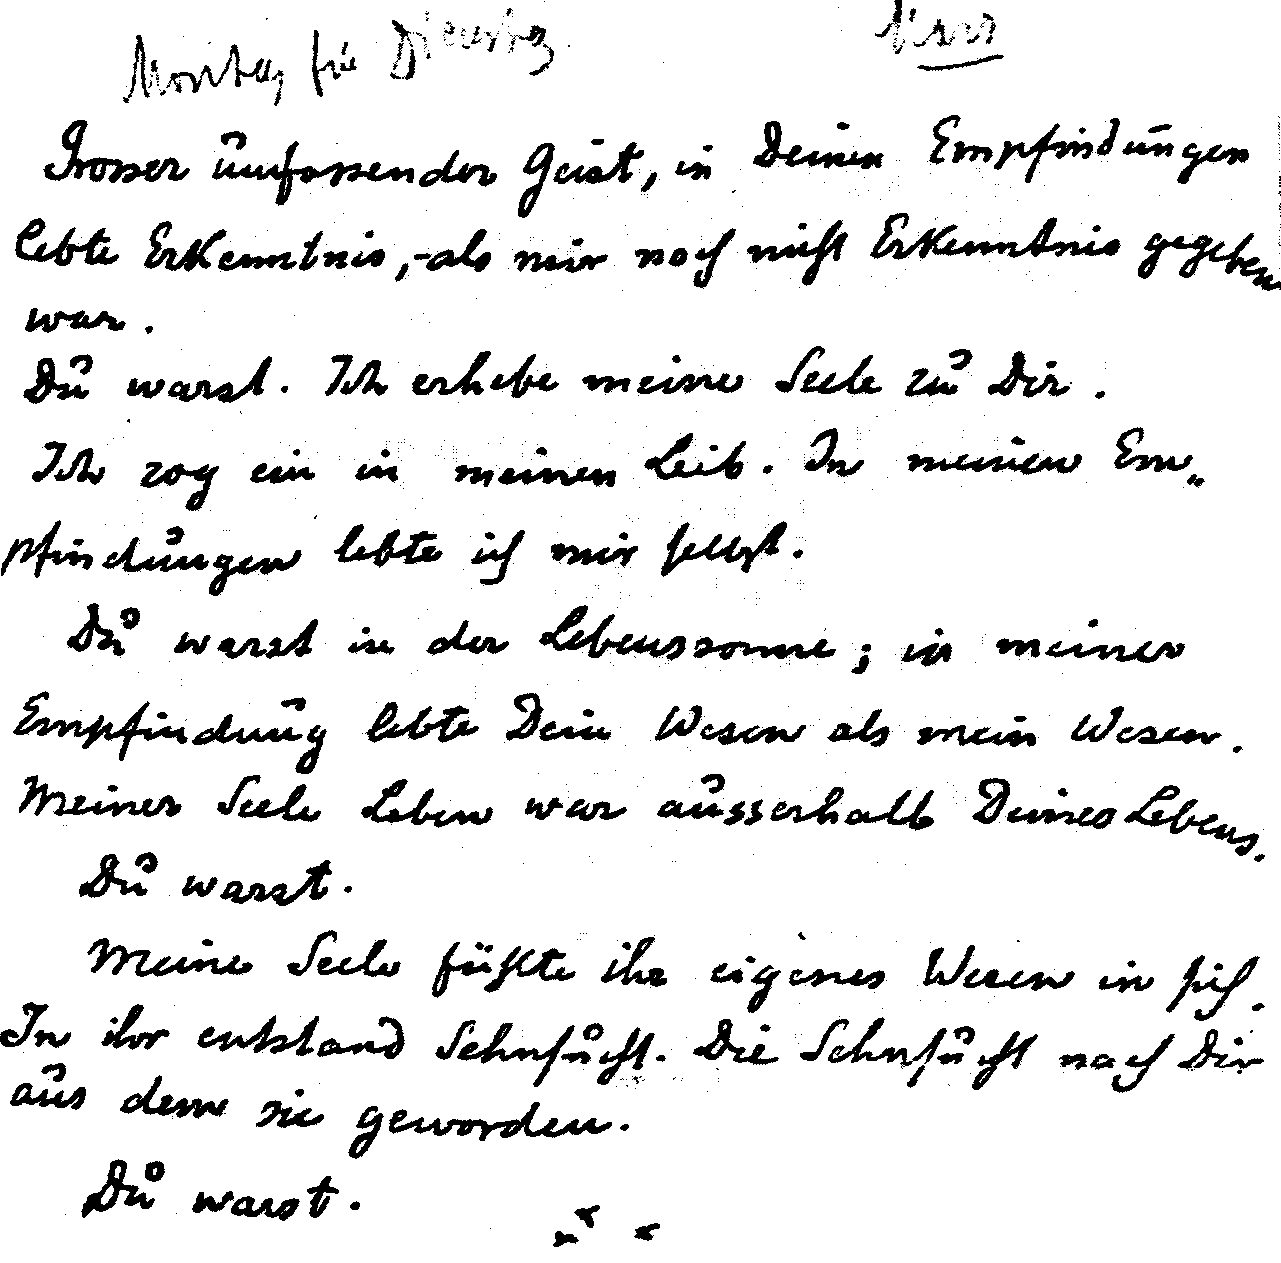 Montag für Dienstag Mars
Grosser umfassender Geist, in Deinen Empfindungen
lebte Erkenntnis, - als mir noch nicht Erkenntnis gegeben
war.
Du warst. Ich erhebe meine Seele zu Dir.
Ich zog ein in meinen Leib. In meinen Em„
pfindungen lebte ich mir selbst.
Du warst in der Lebenssonne; in meiner
Empfindung lebte Dein Wesen als mein Wesen.
Meiner Seele Leben war ausserhalb Deines Lebens.
Du warst.
Meine Seele fühlte ihr eigenes Wesen in sich.
In ihr entstand Sehnsucht. Die Sehnsucht nach Dir
aus dem sie geworden.
Du warst.